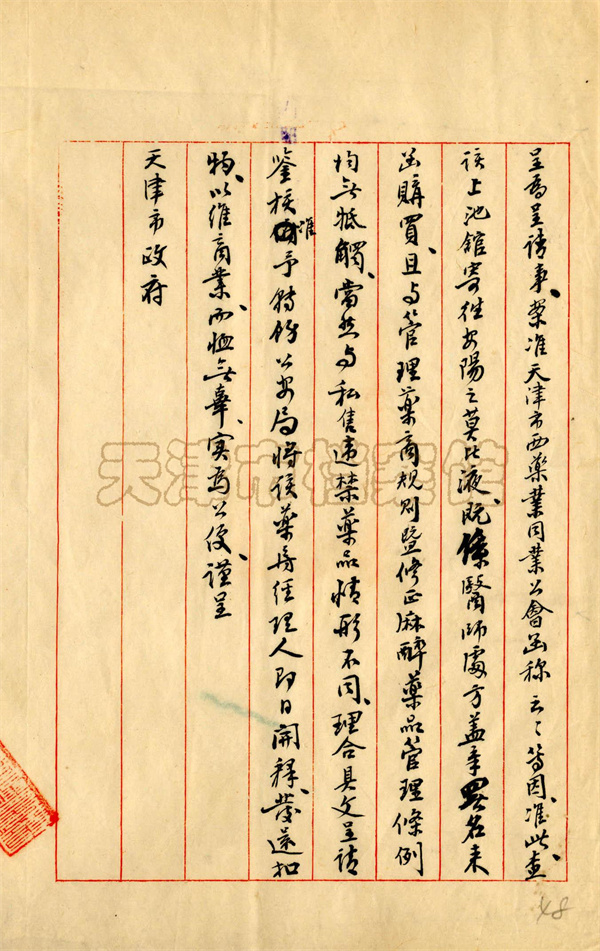 呈爲呈請事、案准天津市西藥業同業公會函称云云等因、准此、查
該上池館寄往安陽之莫比液、既係醫師處方蓋章署名来
函購買、且与管理藥商規則暨修正麻醉藥品管理條例
均無牴觸、當然与私售違禁藥品情形不同、理合具文呈請
鉴核准予轉飭公安局將该藥房经理人即日開释、發还扣
物、以维商業、而恤無辜、实爲公便、謹呈
天津市政府
天津市档案馆
48